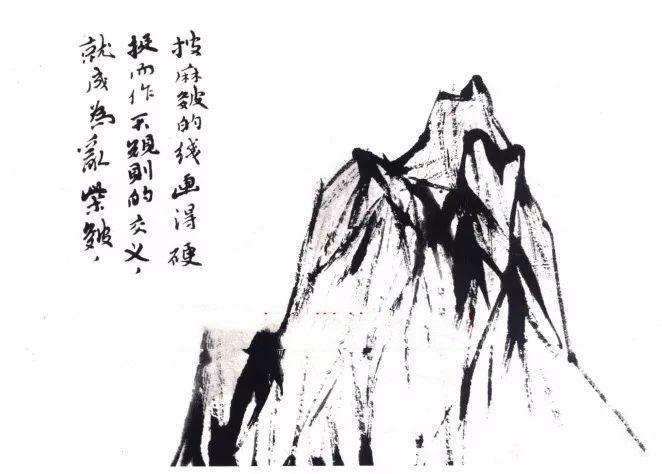 披麻皴的线画得硬
挺而作不规则的交义，
就成为乱柴皴，